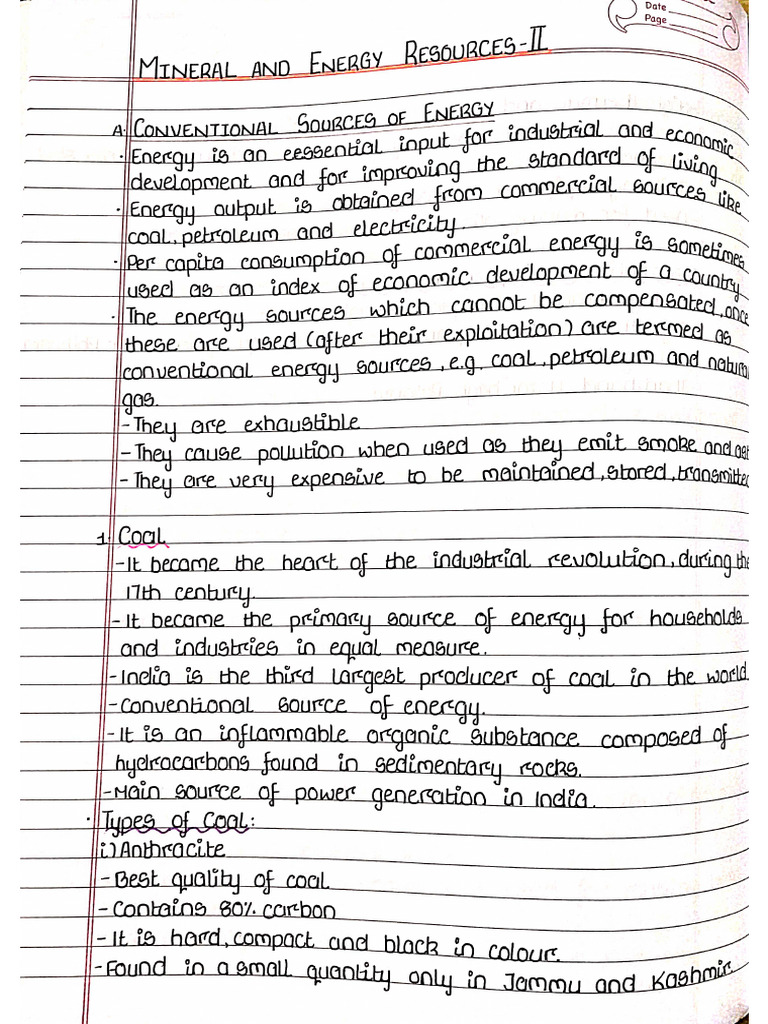 Date
Page
MINERAL AND ENERGY RESOURCES-II
A. CONVENTIONAL SOURCES OF ENERGY
· Energy is an eessential input for industrial and economic
development and for improving the standard of living
· Energy output is obtained from commercial sources like
coal, petroleum and electricity.
· Per capita consumption of commercial energy is sometimes
used as an index of economic development of a country
· The energy sources which cannot be compensated, once
these are used (after their exploitation) are termed as
conventional energy sources, e.g. coal, petroleum and natural
gas.
- They are exhaustible
- They cause pollution when used as they emit smoke and ash
- They are very expensive to be maintained, stored, transmitted
1. Coal
- It became the heart of the industrial revolution, during the
17th century.
- It became the primary source of energy for households
and industries in equal measure.
- India is the third largest producer of coal in the world
- Conventional source of energy.
- It is an inflammable organic substance composed of
hydrocarbons found in sedimentary rocks.
- Main source of power generation in India.
· Types of Coal:
i) Anthracite
- Best quality of coal
- Contains 80% carbon
- It is hard, compact and black in colour.
- Found in a small quantity only in Jammu and Kashmir.